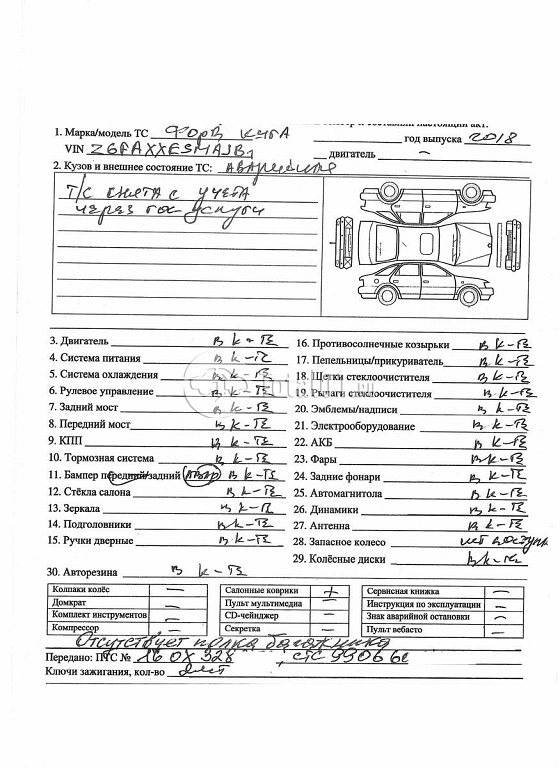 1. Марка/модель ТС Форд Куга год выпуска 2018
VIN двигатель —
2. Кузов и внешнее состояние ТС: аварийное
Т/С снята с учета
через гос-услуги
3. Двигатель в к-те
4. Система питания в к-те
5. Система охлаждения в к-те
6. Рулевое управление в к-те
7. Задний мост в к-те
8. Передний мост в к-те
9. КПП в к-те
10. Тормозная система в к-те
11. Бампер передний/задний в к-те
12. Стёкла салона в к-те
13. Зеркала в к-те
14. Подголовники в к-те
15. Ручки дверные в к-те
16. Противосолнечные козырьки в к-те
17. Пепельницы/прикуриватель в к-те
18. Щетки стеклоочистителя в к-те
19. Рычаги стеклоочистителя в к-те
20. Эмблемы/надписи в к-те
21. Электрооборудование в к-те
22. АКБ в к-те
23. Фары в к-те
24. Задние фонари в к-те
25. Автомагнитола в к-те
26. Динамики в к-те
27. Антенна в к-те
28. Запасное колесо нет доступа
29. Колёсные диски в к-те
30. Авторезина в к-те
Колпаки колёс — Салонные коврики + Сервисная книжка —
Домкрат — Пульт мультимедиа — Инструкция по эксплуатации —
Комплект инструментов — CD-чейнджер — Знак аварийной остановки —
Компрессор — Секретка — Пульт вебасто —
Отсутствует полка багажника
Передано: ПТС № 16 ОХ 328 , СТС 9906
Ключи зажигания, кол-во